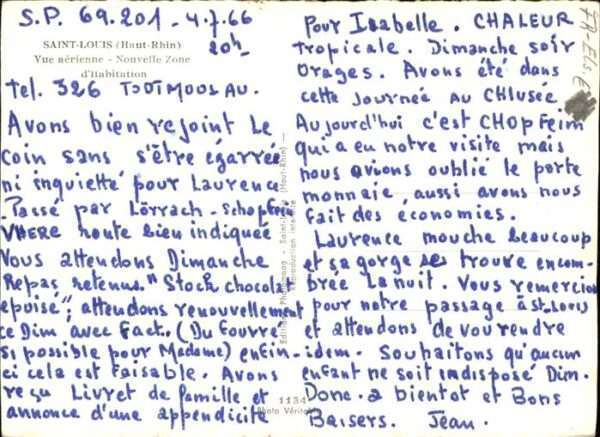 S.P. 69.201 - 4.7.66
20h
SAINT-LOUIS (Haut-Rhin)
Vue aérienne - Nouvelle Zone
d'Habitation
Tel. 326 TODTMOOS AU.
Avons bien rejoint le
coin sans s'être égarrée
ni inquietté pour Laurence
Passé par Lörrach - Schopfei
VHERE route bien indiquée
Vous attendons Dimanche
Repas retenus. "Stock chocolat
epuisé"; attendons renouvellement
ce Dim avec Fact. (Du
si possible pour Madame) enfin
ci cela est faisable. Avons
reçu Livret de famille et
annonce d'une appendicite
pour Isabelle. CHALEUR
tropicale. Dimanche soir
orages. Avons été dans
cette journée au CHLUSÉE.
Aujourd'hui c'est CHOPFEIM
qui a eu notre visite mais
nous avions oublié le porte
monnaie, aussi avons nous
fait des économies.
Laurence mouche beaucoup
et sa gorge se trouve encom-
brée la nuit. Vous remercion
pour notre passage à St. Louis
et attendons de vou rendre
idem. Souhaitons qu'aucun
enfant ne soit indisposé Dim.
Donc. a bientot et Bons
Baisers. Jean.
1134
Photo Véritable